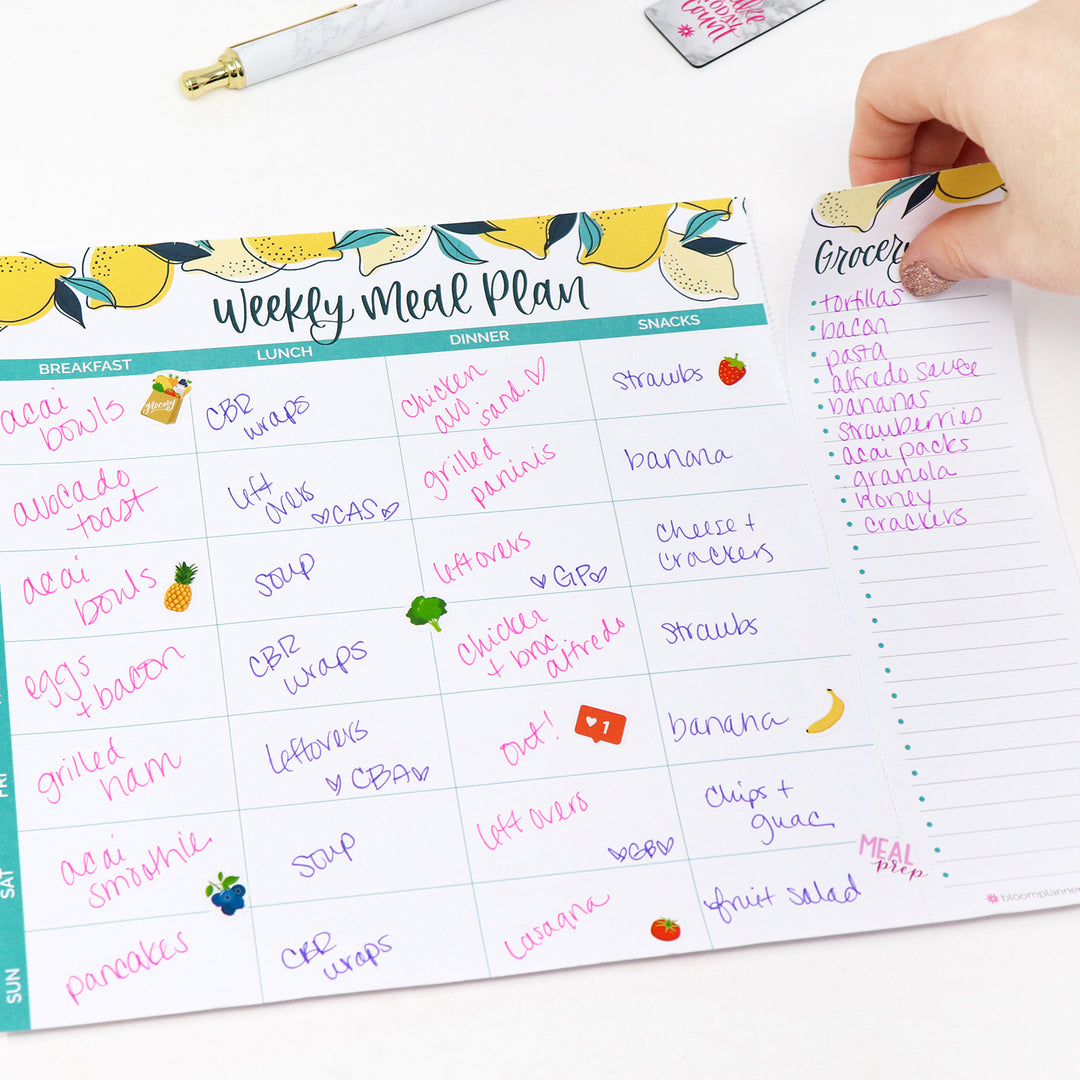 make
TODAY
count
Weekly Meal Plan
BREAKFAST
LUNCH
DINNER
SNACKS
acai
bowls
grocery
CBR
wraps
chicken
avo
sand.
strawbs
avocado
toast
left
overs
CAS
grilled
paninis
banana
acai
bowls
soup
leftovers
GP
cheese +
crackers
eggs
+ bacon
CBR
wraps
chicken
+ broc
alfredo
strawbs
FRI
grilled
ham
leftovers
CBA
out!
1
banana
SAT
acai
smoothie
soup
left overs
GB
chips +
guac
SUN
pancakes
CBR
wraps
lasagna
fruit salad
MEAL
prep
Grocery
tortillas
bacon
pasta
alfredo sauce
bananas
strawberries
acai packs
granola
honey
crackers
bloomplanner